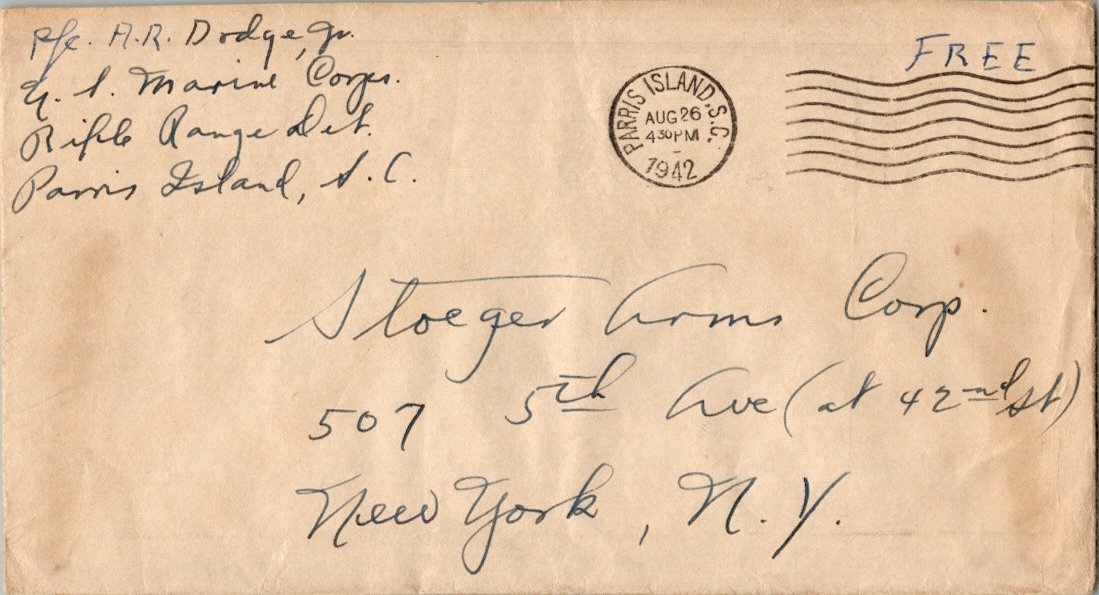 Pfc. A.R. Dodge, Jr.
U. S. Marine Corps.
Rifle Range Det.
Parris Island, S.C.
PARRIS ISLAND, S.C.
AUG 26
4 30 PM
1942
FREE
Stoeger Arms Corp.
507 5th Ave (at 42nd St)
New York, N.Y.